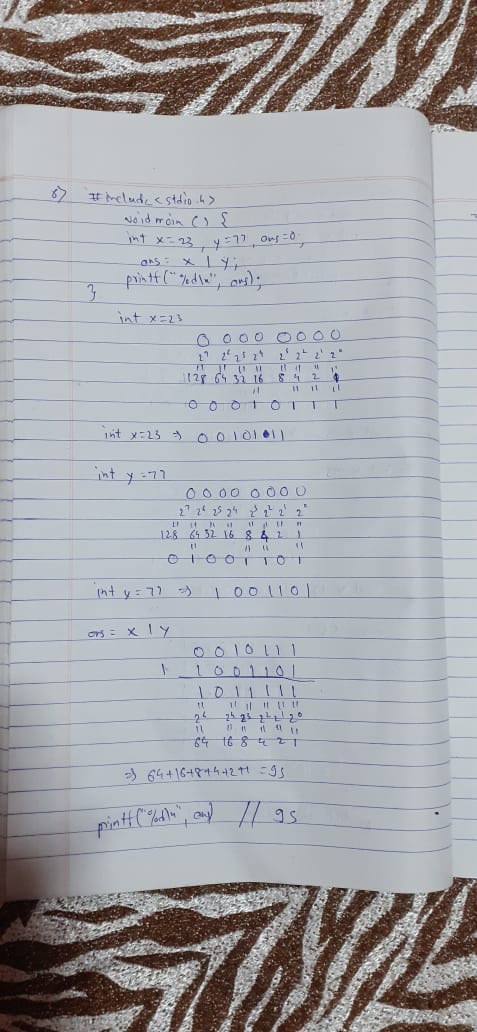 6)
#include<stdio.h>
void main () {
int x=23, y=77, ans=0;
ans= x | y;
printf("%d\n", ans);
}
int x=23
0 0 0 0 0 0 0 0
2⁷ 2⁶ 2⁵ 2⁴ 2³ 2² 2¹ 2⁰
" " " " " " " "
128 64 32 16 8 4 2 1
" " " "
0 0 0 1 0 1 1 1
int x=23 ⇒ 0 0 1 0 1 1 1
int y=77
0 0 0 0 0 0 0 0
2⁷ 2⁶ 2⁵ 2⁴ 2³ 2² 2¹ 2⁰
" " " " " " " "
128 64 32 16 8 4 2 1
" " " "
0 1 0 0 1 1 0 1
int y=77 ⇒ 1 0 0 1 1 0 1
ans= x | y
0 0 1 0 1 1 1
| 1 0 0 1 1 0 1
1 0 1 1 1 1 1
" " " " " "
2⁶ 2⁴ 2³ 2² 2¹ 2⁰
" " " " " "
64 16 8 4 2 1
⇒ 64+16+8+4+2+1 =95
printf("%d\n", ans) // 95